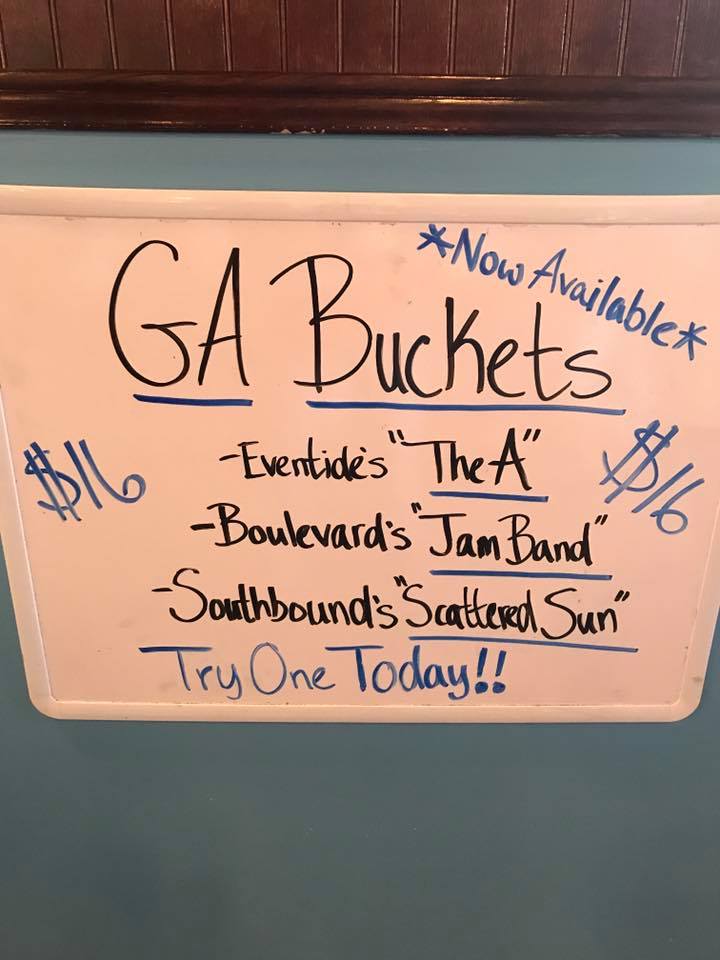 *Now Available*
GA Buckets
$16
$16
-Eventide's "The A"
-Boulevard's "Jam Band"
-Southbound's "Scattered Sun"
Try One Today!!